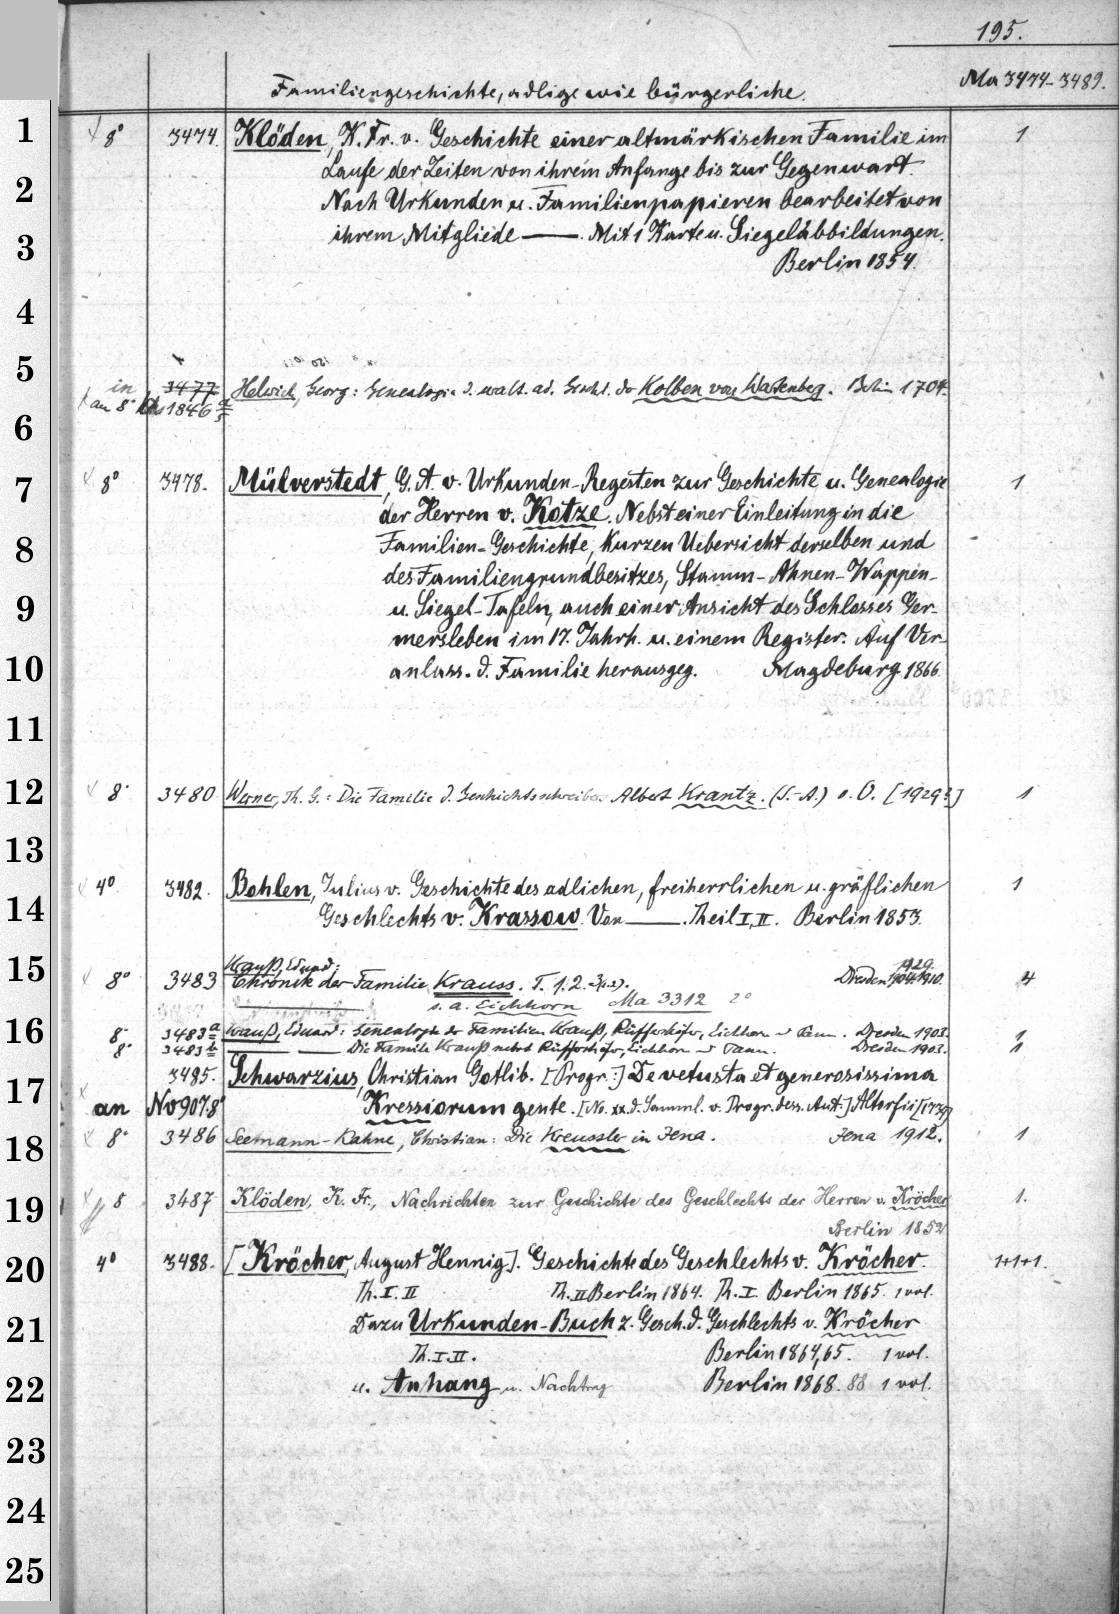 195.
Familiengeschichte, adlige wie bürgerliche. Ma 3474-3489.
1 8° 3474. Klöden, K. Fr. v. Geschichte einer altmärkischen Familie im 1
Laufe der Zeiten von ihrem Anfange bis zur Gegenwart.
2 Nach Urkunden u. Familienpapieren bearbeitet von
3 ihrem Mitgliede —— . Mit 1 Karte u. Siegelabbildungen.
Berlin 1854.
4
5
in 3477 Helwich, Georg: Genealogia d. ad. Geschl. der Kolben von Wartenberg. 1704.
an 8° 1846
6
7 8° 3478. Mülverstedt, G. A. v. Urkunden-Regesten zur Geschichte u. Genealogie 1
der Herren v. Kotze. Nebst einer Einleitung in die
8 Familien-Geschichte, kurzen Uebersicht derselben und
des Familiengrundbesitzes, Stamm- Ahnen- Wappen-
9 u. Siegel-Tafeln, auch einer Ansicht des Schlosses Ger-
mersleben im 17. Jahrh. u. einem Register. Auf Ver-
10 anlass. d. Familie herausgeg. Magdeburg 1866.
11
12 8° 3480 Werner, Th. G.: Die Familie d. Geschichtsschreibers Albert Krantz. (S.-A.) o. O. [1929?] 1
13
14 4° 3482. Bohlen, Julius v. Geschichte des adlichen, freiherrlichen u. gräflichen 1
Geschlechts v. Krassow. Von —— . Theil I, II. Berlin 1853.
15 Krauß, Eduard: 1929
8° 3483 Chronik der Familie Krauss. T. 1. 2. 3 Dresden 1904. 1910. 4
s. a. Eichhorn Ma 3312 2°
16 8° 3483a Krauß, Eduard: Genealogie der Familien Krauß, Rüffershöfer, Eichhorn u Tann. Dresden 1903. 1
8° 3483b —— —— Die Familie Krauß nebst Rüffershöfer, Eichhorn u Tann. Dresden 1903. 1
17 3485. Schwarzius, Christian Gotlib. [Progr:] De vetusta et generosissima
an Nv 907.8° Kressiorum gente. [No. xx. d. Samml. v. Progr. dess. Aut.] Altorfii
18 8° 3486 Seemann-Kahne, Christian: Die Kreussler in Jena. Jena 1912. 1
19 8 3487 Klöden, K. Fr., Nachrichten zur Geschichte des Geschlechts der Herren v. Kröcher 1.
Berlin 1852
20 4° 3488. [Kröcher, August Hennig]. Geschichte des Geschlechts v. Kröcher. 1+1+1.
Th. I. II Th. II Berlin 1864. Th. I. Berlin 1865. 1 vol.
21 Dazu Urkunden-Buch z. Gesch. d. Geschlechts v. Kröcher
Th. I. II. Berlin 1864, 65. 1 vol.
22 u. Anhang u. Nachtrag Berlin 1868. 88 1 vol.
23
24
25